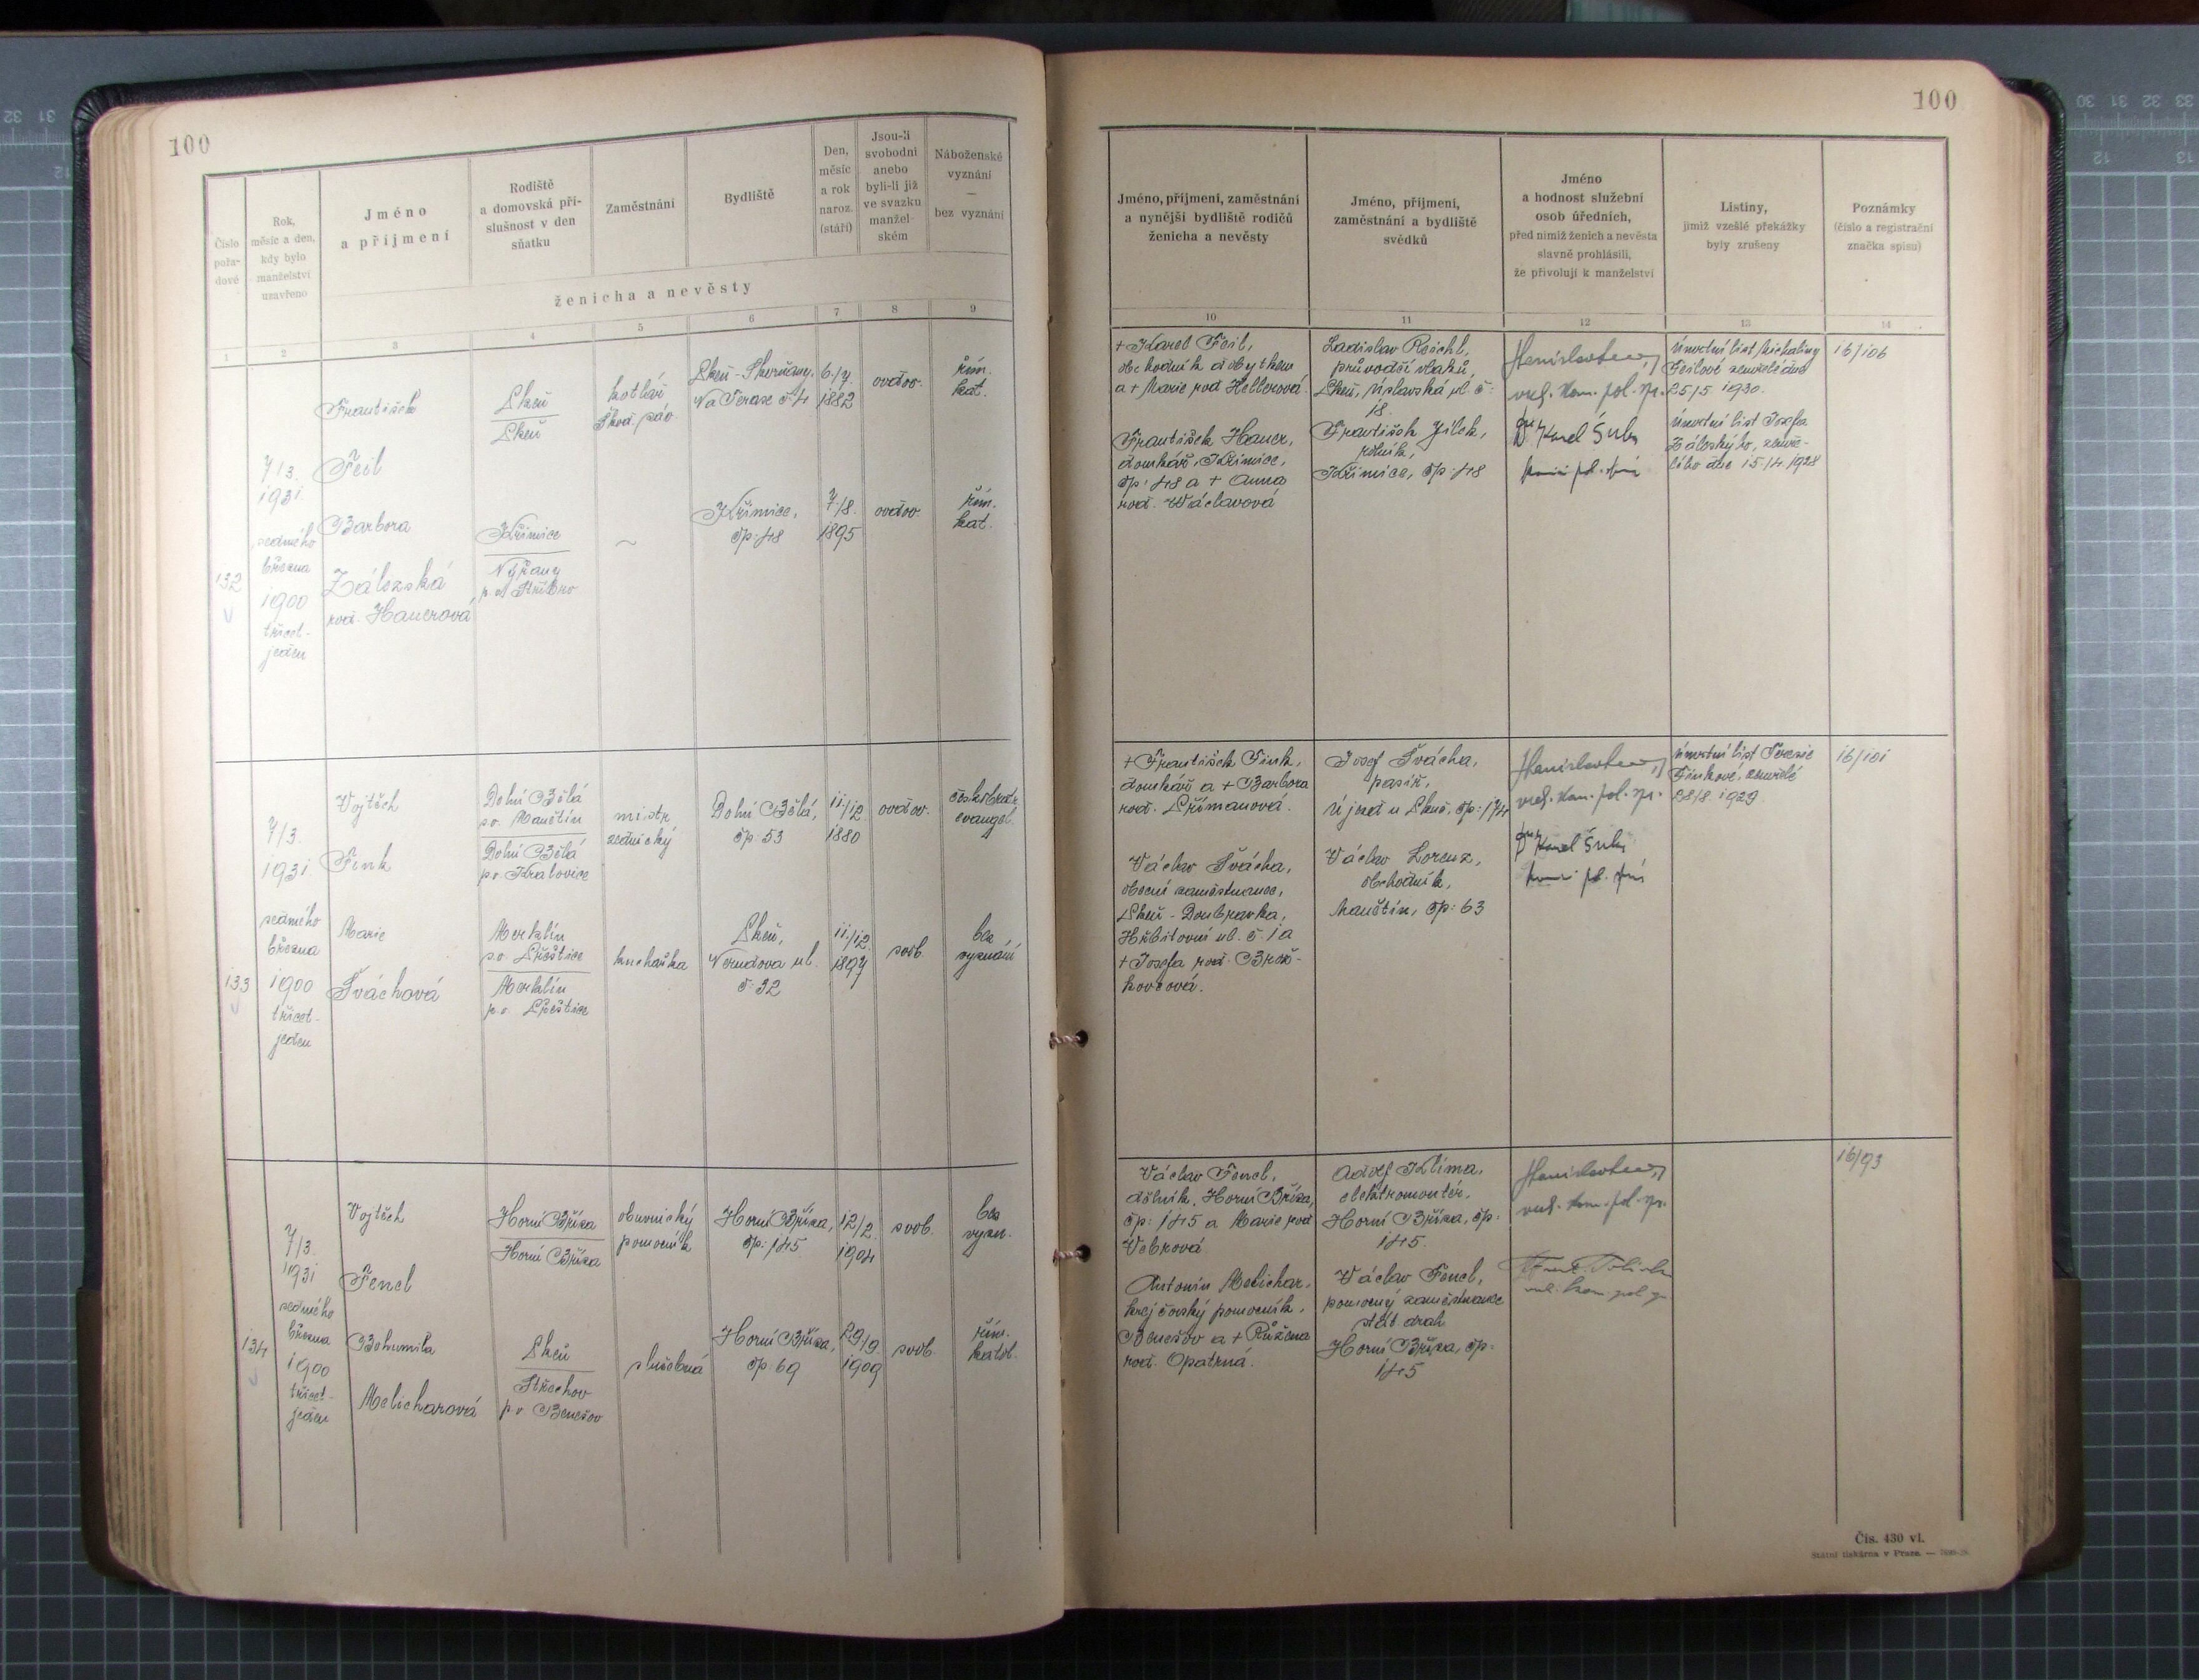 100
Číslo
pořa-
dové
Rok,
měsíc a den,
kdy bylo
manželství
uzavřeno
Jméno
a příjmení
Rodiště
a domovská pří-
slušnost v den
sňatku
Zaměstnání
Bydliště
Den,
měsíc
a rok
naroz.
(stáří)
Jsou-li
svobodni
anebo
byli-li již
ve svazku
manžel-
ském
Náboženské
vyznání
—
bez vyznání
ženicha a nevěsty
1 2 3 4 5 6 7 8 9
132
7/3.
1931
sedmého
března
1900
třicet-
jeden
František
Feil
Plzeň
Plzeň
kotlář
Škod. záv
Plzeň-Skvrňany,
Na Terase č. 4
6./7.
1882
ovdov.
řím.
kat.
Barbora
Zálezská
roz. Hauerová
Křimice
Nýřany
p. o. Stříbro
~
Křimice,
čp. 48
7./8.
1895
ovdov.
řím.
kat.
133
7/3.
1931
sedmého
března
1900
třicet-
jeden
Vojtěch
Fink
Dolní Bělá
s. o. Manětín
Dolní Bělá
p. o. Kralovice
mistr
zednický
Dolní Bělá,
čp. 53
11./12.
1880
ovdov.
českobratr.
evangel.
Marie
Šváchová
Merklín
s. o. Přeštice
Merklín
p. o. Přeštice
kuchařka
Plzeň,
Nerudova ul.
č. 32
11./12.
1897
svob.
bez
vyznání
134
7/3.
1931
sedmého
března
1900
třicet-
jeden
Vojtěch
Fencl
Horní Bříza
Horní Bříza
obuvnický
pomocník
Horní Bříza,
čp. 145
12/2.
1904
svob.
bez
vyzn.
Bohumila
Melicharová
Plzeň
Střechov
p. o. Benešov
služebná
Horní Bříza,
čp. 69
29/9.
1909
svob.
řím.
katol.
100
Jméno, příjmení, zaměstnání
a nynější bydliště rodičů
ženicha a nevěsty
Jméno, příjmení,
zaměstnání a bydliště
svědků
Jméno
a hodnost služební
osob úředních,
před nimiž ženich a nevěsta
slavně prohlásili,
že přivolují k manželství
Listiny,
jimiž vzešlé překážky
byly zrušeny
Poznámky
(číslo a registrační
značka spisu)
10 11 12 13 14
+ Karel Feil,
obchodník dobytkem
a + Marie roz. Hellerová.
František Hauer,
domkář, Křimice,
čp. 48 a + Anna
roz. Václavová
Ladislav Reichl,
průvodčí vlaků,
Plzeň, Úslavská ul. č.
18
František Jílek,
rolník,
Křimice, čp. 48
vrch. kom. pol. spr.
Dr Karel Šulc
Úmrtní list Michaliny
Feilové zemřelé dne
25/5 1930.
úmrtní list Josefa
Zálezského, zemře-
lého dne 15./4. 1928
16/106
+ František Fink,
domkář a + Barbora
roz. Přímanová.
Václav Švácha,
obecní zaměstnanec,
Plzeň-Doubravka,
Hřbitovní ul. č. 1 a
+ Josefa roz. Brož-
kovcová.
Josef Švácha,
pasíř,
Újezd u Plzně, čp. 174
Václav Lorenz,
obchodník,
Manětín, čp. 63
vrch. kom. pol. spr.
Dr Karel Šulc
Úmrtní list Terezie
Finkové, zemřelé
28/8 1929
16/101
Václav Fencl,
dělník, Horní Bříza,
čp. 145 a Marie roz.
Vebrová
Antonín Melichar,
krejčovský pomocník,
Benešov a + Růžena
roz. Opatrná.
Adolf Klíma,
elektromontér,
Horní Bříza, čp.
145.
Václav Fencl,
pomocný zaměstnanec
stát. drah
Horní Bříza, čp.
145
vrch. kom. pol. spr.
16/93
Čís. 430 vl.
Státní tiskárna v Praze. —